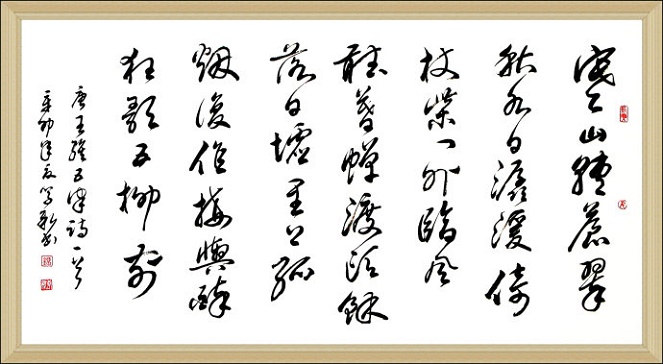 寒山轉蒼翠
秋水日潺湲倚
杖柴门外臨风
聽暮蟬渡頭餘
落日墟里上孤
烟復值接輿醉
狂歌五柳前
唐王維五律詩一首
辛卯年夏